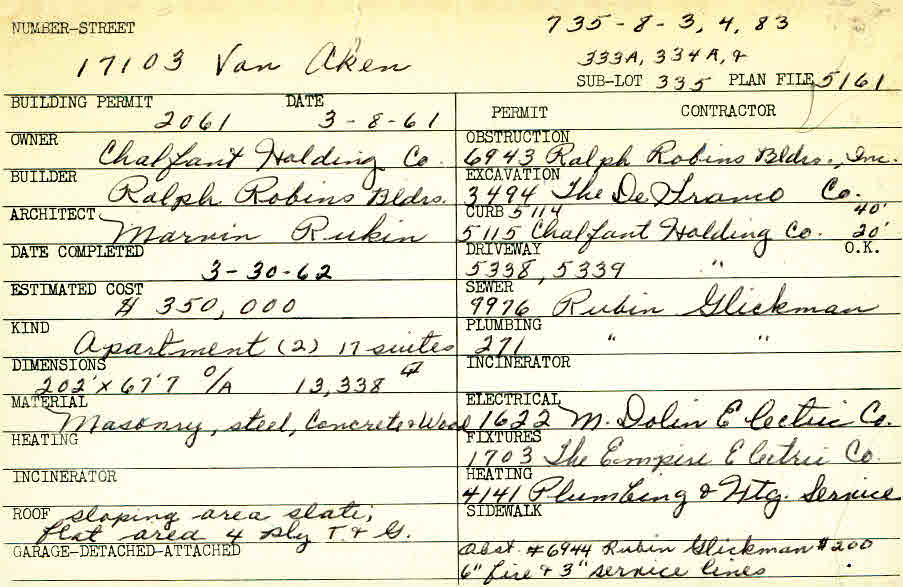 NUMBER-STREET
735-8-3, 4, 83
17103 Van Aken
333A, 334A, &
SUB-LOT 335 PLAN FILE 5161
BUILDING PERMIT DATE
2061 3-8-61
OWNER
Chalfant Holding Co.
BUILDER
Ralph Robins Bldrs.
ARCHITECT
Marvin Rukin
DATE COMPLETED
3-30-62
ESTIMATED COST
$ 350,000
KIND
Apartment (2) 17 suites
DIMENSIONS
202' x 67'7 O/A 13,338
MATERIAL
Masonry, steel, Concrete & Wood
HEATING
INCINERATOR
ROOF sloping area slate,
flat area 4 ply T. & G.
GARAGE-DETACHED-ATTACHED
PERMIT CONTRACTOR
OBSTRUCTION
6943 Ralph Robins Bldrs., Inc.
EXCAVATION
3494 The De Franco Co.
CURB 5114 40'
5115 Chalfant Holding Co. 20'
DRIVEWAY O.K.
5338, 5339 "
SEWER
9976 Rubin Glickman
PLUMBING
271 " "
INCINERATOR
ELECTRICAL
1622 M. Dolin Electric Co.
FIXTURES
1703 The Empire Electric Co.
HEATING
4141 Plumbing & Htg. Service
SIDEWALK
Obst. #6944 Rubin Glickman $200
6" fire & 3" service lines